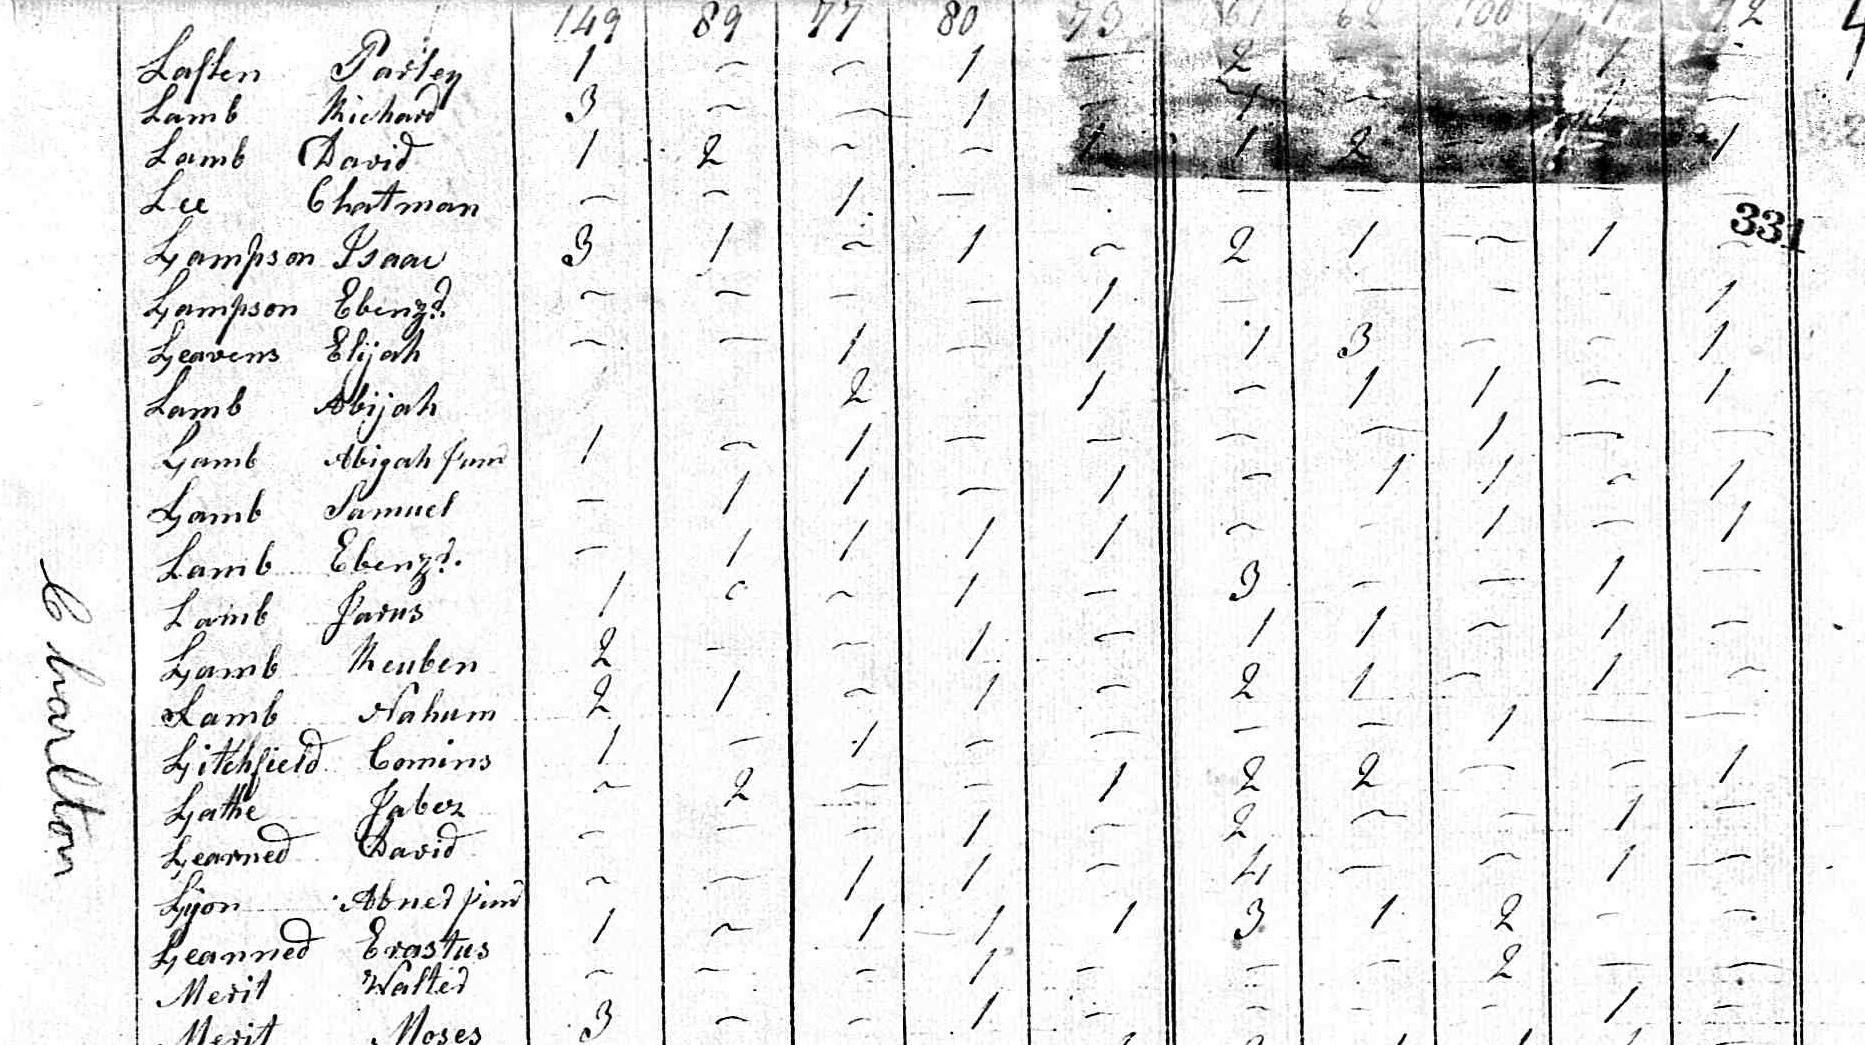 149 89 77 80 73 61 62 100 72
Laflen Parley 1 ~ ~ 1 — 2 - - 1 -
Lamb Richard 3 ~ — 1 - 1 ~ - 1 ~
Lamb David 1 2 ~ ~ 1 1 2 - 1
Lee Chatman ~ ~ 1 — - — — — — -
331
Lampson Isaac 3 1 ~ 1 ~ 2 1 ~ 1 ~
Lampson Ebenzr. ~ ~ - — 1 — — - - 1
Leavens Elijah ~ — 1 — 1 1 3 ~ - 1
Lamb Abijah 2 1 ~ 1 1 ~ 1
Lamb Abigah Junr 1 ~ 1 — ~ ~ ~ 1 — —
Lamb Samuel - 1 1 ~ 1 ~ 1 1 ~ 1
Lamb Ebenzr. ~ 1 1 1 1 ~ - 1 ~ 1
Lamb Jarus 1 c ~ 1 - 3 - - 1 —
Lamb Reuben 2 - - 1 ~ 1 1 ~ 1 ~
Lamb Nahum 2 1 ~ 1 ~ 2 1 ~ 1 ~
Litchfield Comins 1 - 1 - — - - 1 — —
Lathe Jabez ~ 2 ~ - 1 2 2 — ~ 1
Learned David - - - 1 ~ 2 ~ - 1 —
Lyon Abner Junr ~ — 1 1 ~ 4 — ~ 1 ~
Leanned Erastus 1 ~ 1 1 1 3 1 2 - ~
Merit Walter ~ ~ ~ 1 ~ - - 2 — —
Merit Moses 3 ~ ~ 1 ~ - - - 1 —
Charlton